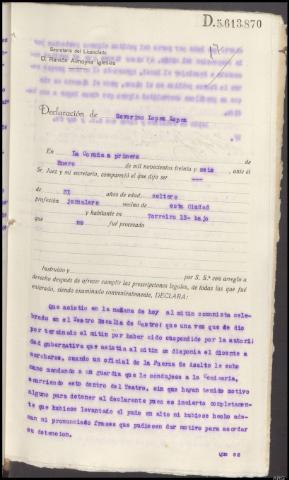 D.5.613.870
Secretaría del Licenciado
D. Ramón Almoyna Iglesias
Declaración de Severino Lopez Lopez
En La Coruña a primero de
Enero de mil novecientos treinta y seis, ante el
Sr. Juez y mi secretario, compareció el que dijo ser
de 21 años de edad, soltero
profesión jornalero vecino de esta Ciudad
y habitante en Torreiro 13- bajo
que no fué procesado
Instruído y por S. S.ª con arreglo a
derecho después de ofrecer cumplir las prescripciones legales, de todas las que fué
enterado, siendo examinado convenientemente, DECLARA:
Que asistio en la mañana de hoy al mitin comunista cele-
brado en el Teatro Rosalia de Castro; que una vez que se dio
por terminado el mitin por haber sido suspendido por la autori-
dad gubernativa que asistia al mitin se disponia el dicente a
marcharse, cuando un oficial de la Fuerza de Asalto le echo
mano mandando a un guardia que le condujese a la Comisaria,
ocurriendo esto dentro del Teatro, sin que hayan tenido motivo
alguno para detener al declarante pues es incierto completamen-
te que hubiese levantado el puño en alto ni hubiese hecho ade-
man ni pronunciado frases que pudiesen dar motivo para acordar
su detencion.
Que es